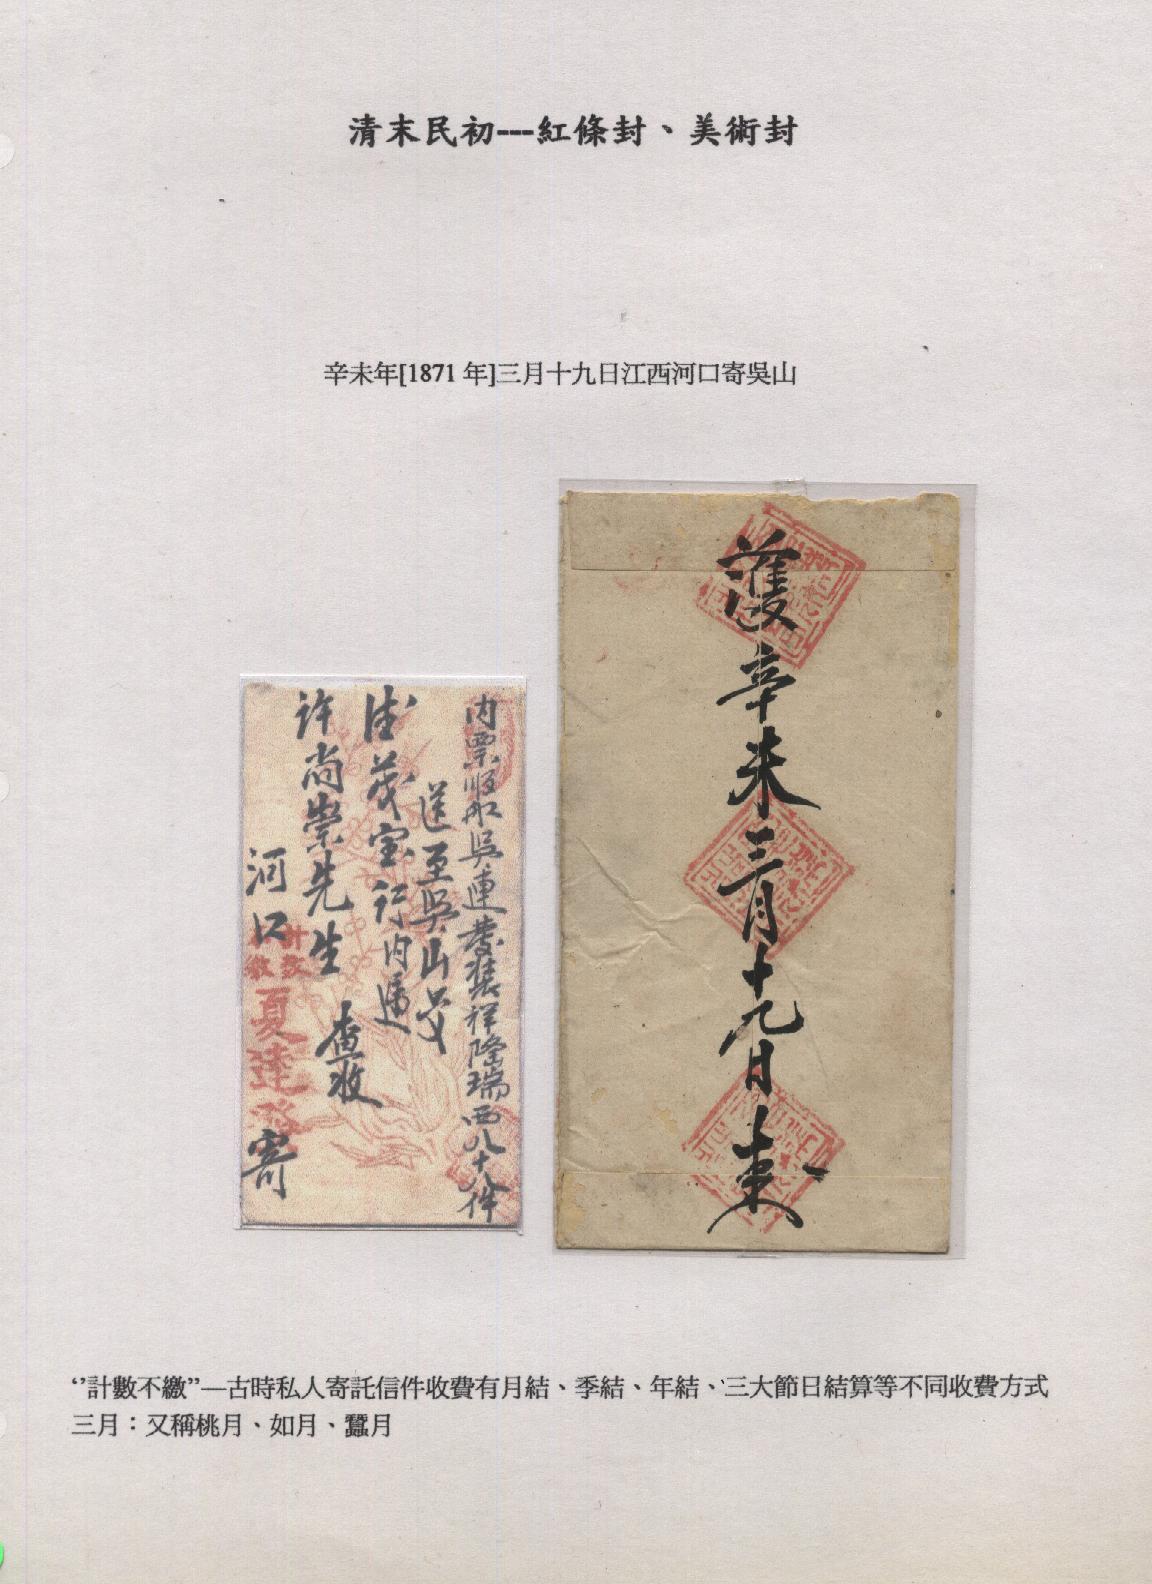 清末民初---紅條封、美術封
辛未年[1871 年]三月十九日江西河口寄吳山
護辛未三月十九日東
內票順船吳連慶裝祥隆瑞西八十八件
送至吳山交
德茂宝行內遞
許尚崇先生 查收
河口
夏達
寄
‘’計數不繳”—古時私人寄託信件收費有月結、季結、年結、三大節日結算等不同收費方式
三月：又稱桃月、如月、蠶月